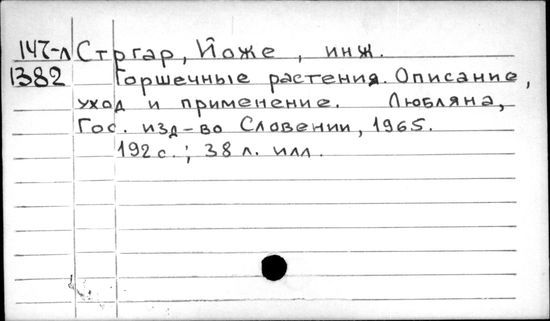 147-л Стргар, Йоже, инж.
1382 Горшечные растения. Описание,
уход и применение. Любляна,
Гос. изд-во Словении, 1965.
192 с.; 38 л. илл.